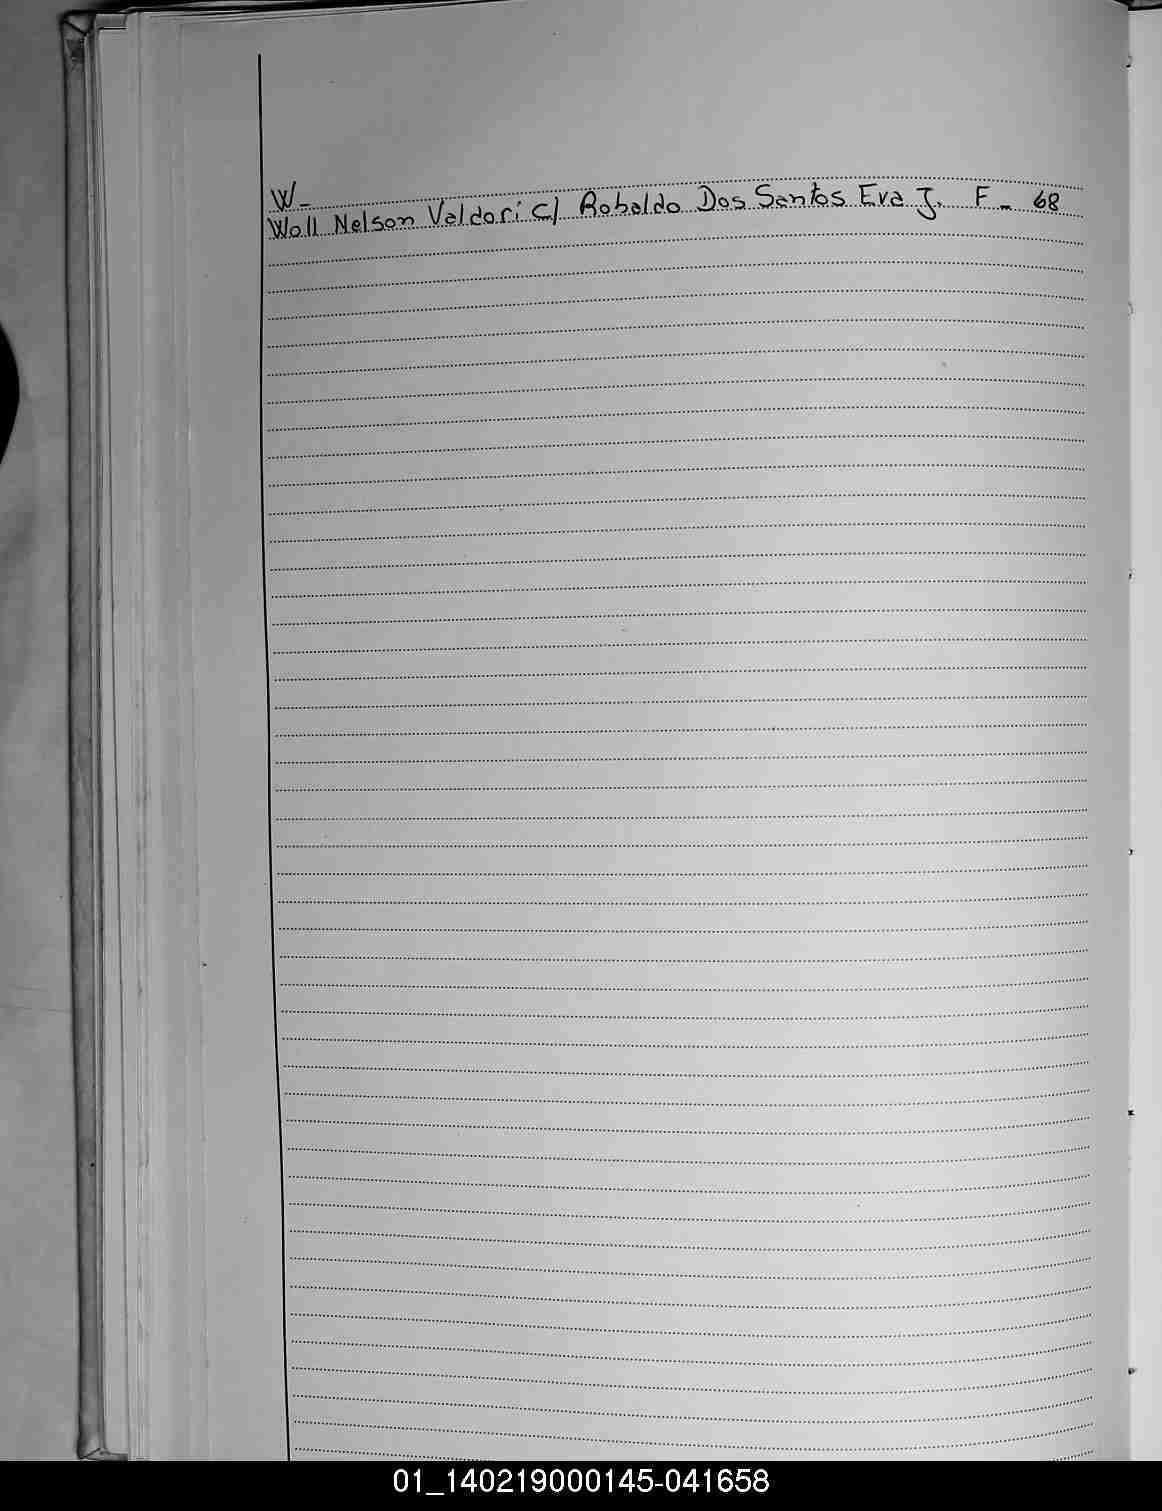 W-
Woll Nelson Valdori c/ Robaldo Dos Santos Eva J. F- 68
01_140219000145-041658